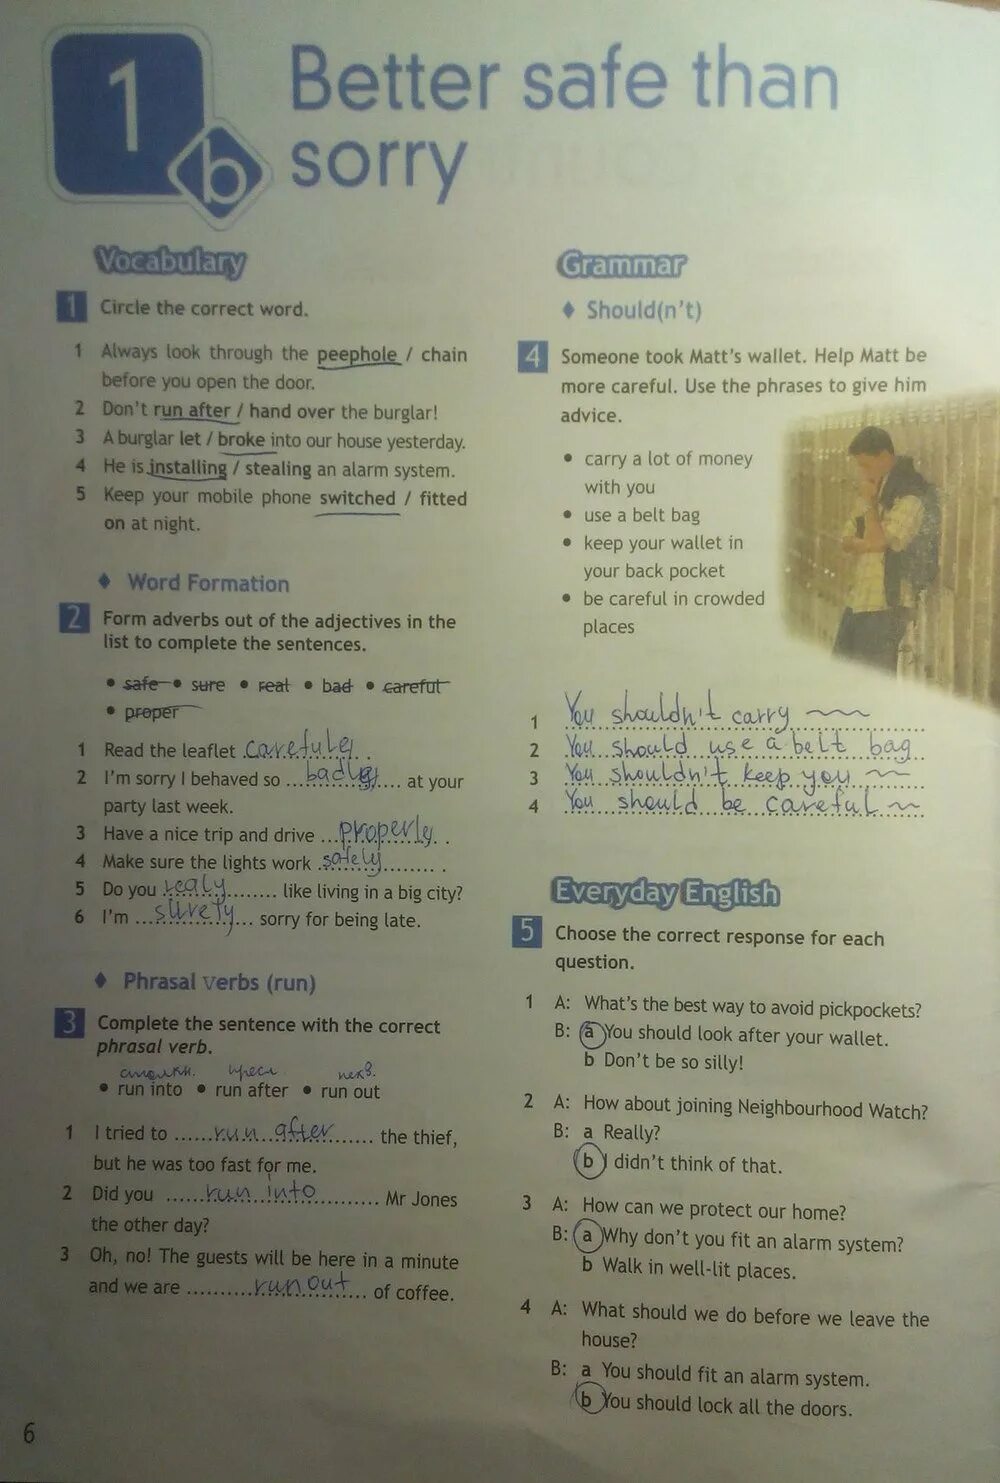 1 b
Better safe than
sorry
Vocabulary
1 Circle the correct word.
1 Always look through the peephole / chain
before you open the door.
2 Don't run after / hand over the burglar!
3 A burglar let / broke into our house yesterday.
4 He is installing / stealing an alarm system.
5 Keep your mobile phone switched / fitted
on at night.
♦ Word Formation
2 Form adverbs out of the adjectives in the
list to complete the sentences.
• safe • sure • real • bad • careful
• proper
1 Read the leaflet carefuley.
2 I'm sorry I behaved so ...badley... at your
party last week.
3 Have a nice trip and drive ...properly...
4 Make sure the lights work .safely..........
5 Do you realy........ like living in a big city?
6 I'm ...surety... sorry for being late.
♦ Phrasal verbs (run)
3 Complete the sentence with the correct
phrasal verb.
столкн. пресл
• run into • run after • run out
1 I tried to ......run after...... the thief,
but he was too fast for me.
2 Did you ......run into.......... Mr Jones
the other day?
3 Oh, no! The guests will be here in a minute
and we are ..........run out... of coffee.
6
Grammar
♦ Should(n't)
4 Someone took Matt's wallet. Help Matt be
more careful. Use the phrases to give him
advice.
• carry a lot of money
with you
• use a belt bag
• keep your wallet in
your back pocket
• be careful in crowded
places
1 You shouldn't carry ~
2 You should use a belt bag
3 You shouldn't keep you ~
4 You should be careful ~
Everyday English
5 Choose the correct response for each
question.
1 A: What's the best way to avoid pickpockets?
B: a You should look after your wallet.
b Don't be so silly!
2 A: How about joining Neighbourhood Watch?
B: a Really?
b I didn't think of that.
3 A: How can we protect our home?
B: a Why don't you fit an alarm system?
b Walk in well-lit places.
4 A: What should we do before we leave the
house?
B: a You should fit an alarm system.
b You should lock all the doors.